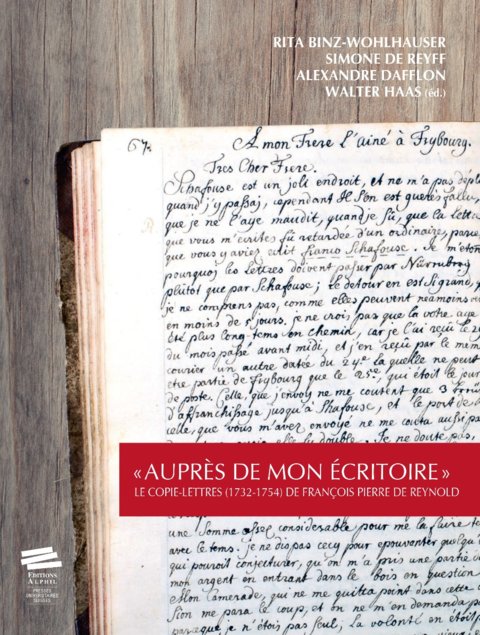 RITA BINZ-WOHLHAUSER
SIMONE DE REYFF
ALEXANDRE DAFFLON
WALTER HAAS (éd.)
67.
A mon Frere l'ainé à Frybourg.
Tres Cher Frere.
Schafouse est un joli endroit, et ne m'a pas
quand j'y passaj, cependant Il s'en est
que je ne l'aye maudit, quand je sû, que la
que vous m'ecrites fû retardée d'un ordinaire,
que vous y aviez ecrit franco Schafouse. Je
pourquoj les lettres doivent passer par Nürnubrg
plûtot que par Schafouse; le detour en est
je ne comprens pas, comme elles peuvent neâmoins
en moins de jours. je ne crois pas que la votre aye
été plus long-tems en chemin, car je l'ai reçû le
du mois passé avant midi, et j'en reçû par le
courier un autre datée du 24e la quelle ne peut
être partie de frybourg que le 25e, qui étoit le jour
de poste. Celle, que j'envoy ne me coutent que 3
d'affranchissage jusqu'à Shafouse, et le port de
celle, que vous m'avez envoyé ne me couta aussi
le double. Je ne doute pas,
« AUPRÈS DE MON ÉCRITOIRE »
LE COPIE-LETTRES (1732-1754) DE FRANÇOIS PIERRE DE REYNOLD
une somme assez considerable pour me la faire
avec le tems. je ne dis pas cecy pour epouvanter
qui pouroit conjecturer, qu'on m'a pris une partie
mon argent en entrant dans le bois en question
Mon Camerade, qui ne me quitta point dans cette
Sion me para le coup, et on ne m'en demanda
que je n'étois pas seul; La volonté en étoit
EDITIONS
ALPHIL
PRESSES
UNIVERSITAIRES
SUISSES